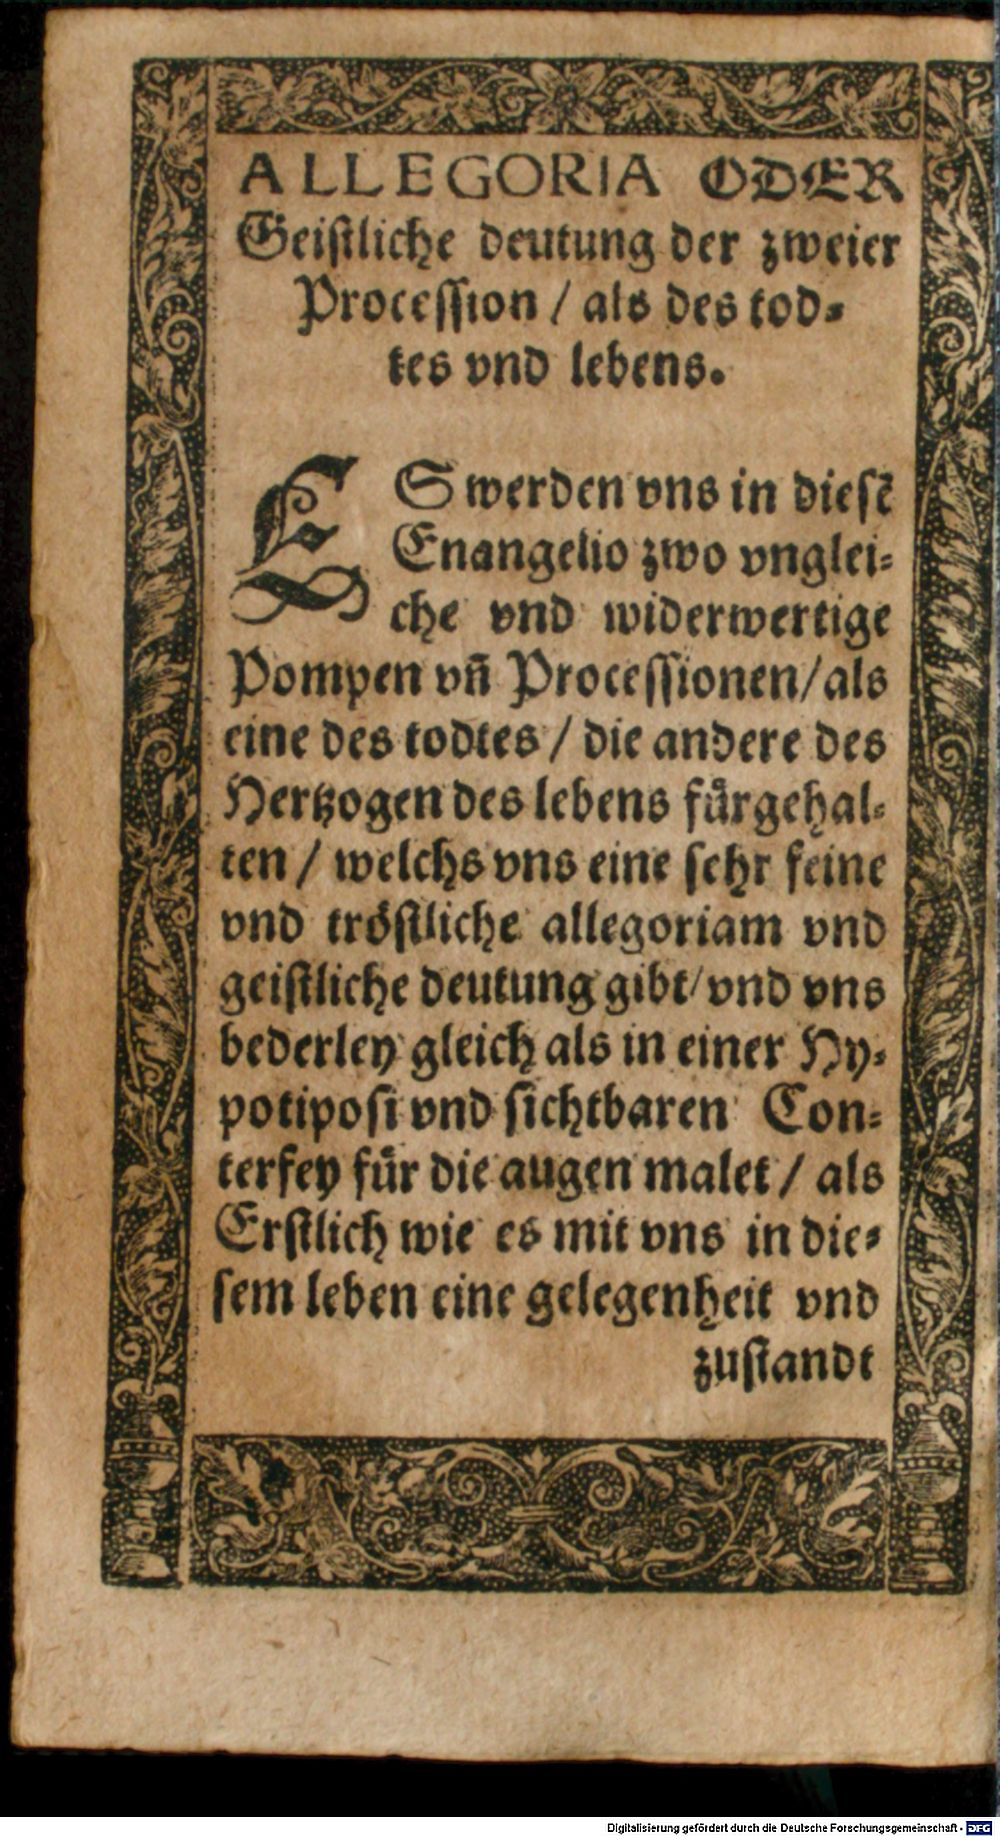 ALLEGORIA ODER
Geiſtliche deutung der zweier
Proceſſion / als des tod⸗
tes vnd lebens.
ES werden vns in dieſẽ
Enangelio zwo vnglei⸗
che vnd widerwertige
Pompen vñ Proceſſionen / als
eine des todtes / die andere des
Hertzogen des lebens fuͤrgehal⸗
ten / welchs vns eine ſehr feine
vnd troͤſtliche allegoriam vnd
geiſtliche deutung gibt / vnd vns
bederley gleich als in einer Hy⸗
potipoſi vnd ſichtbaren Con⸗
terfey fuͤr die augen malet / als
Erſtlich wie es mit vns in die⸗
ſem leben eine gelegenheit vnd
zuſtandt
Digitalisierung gefördert durch die Deutsche Forschungsgemeinschaft - DFG